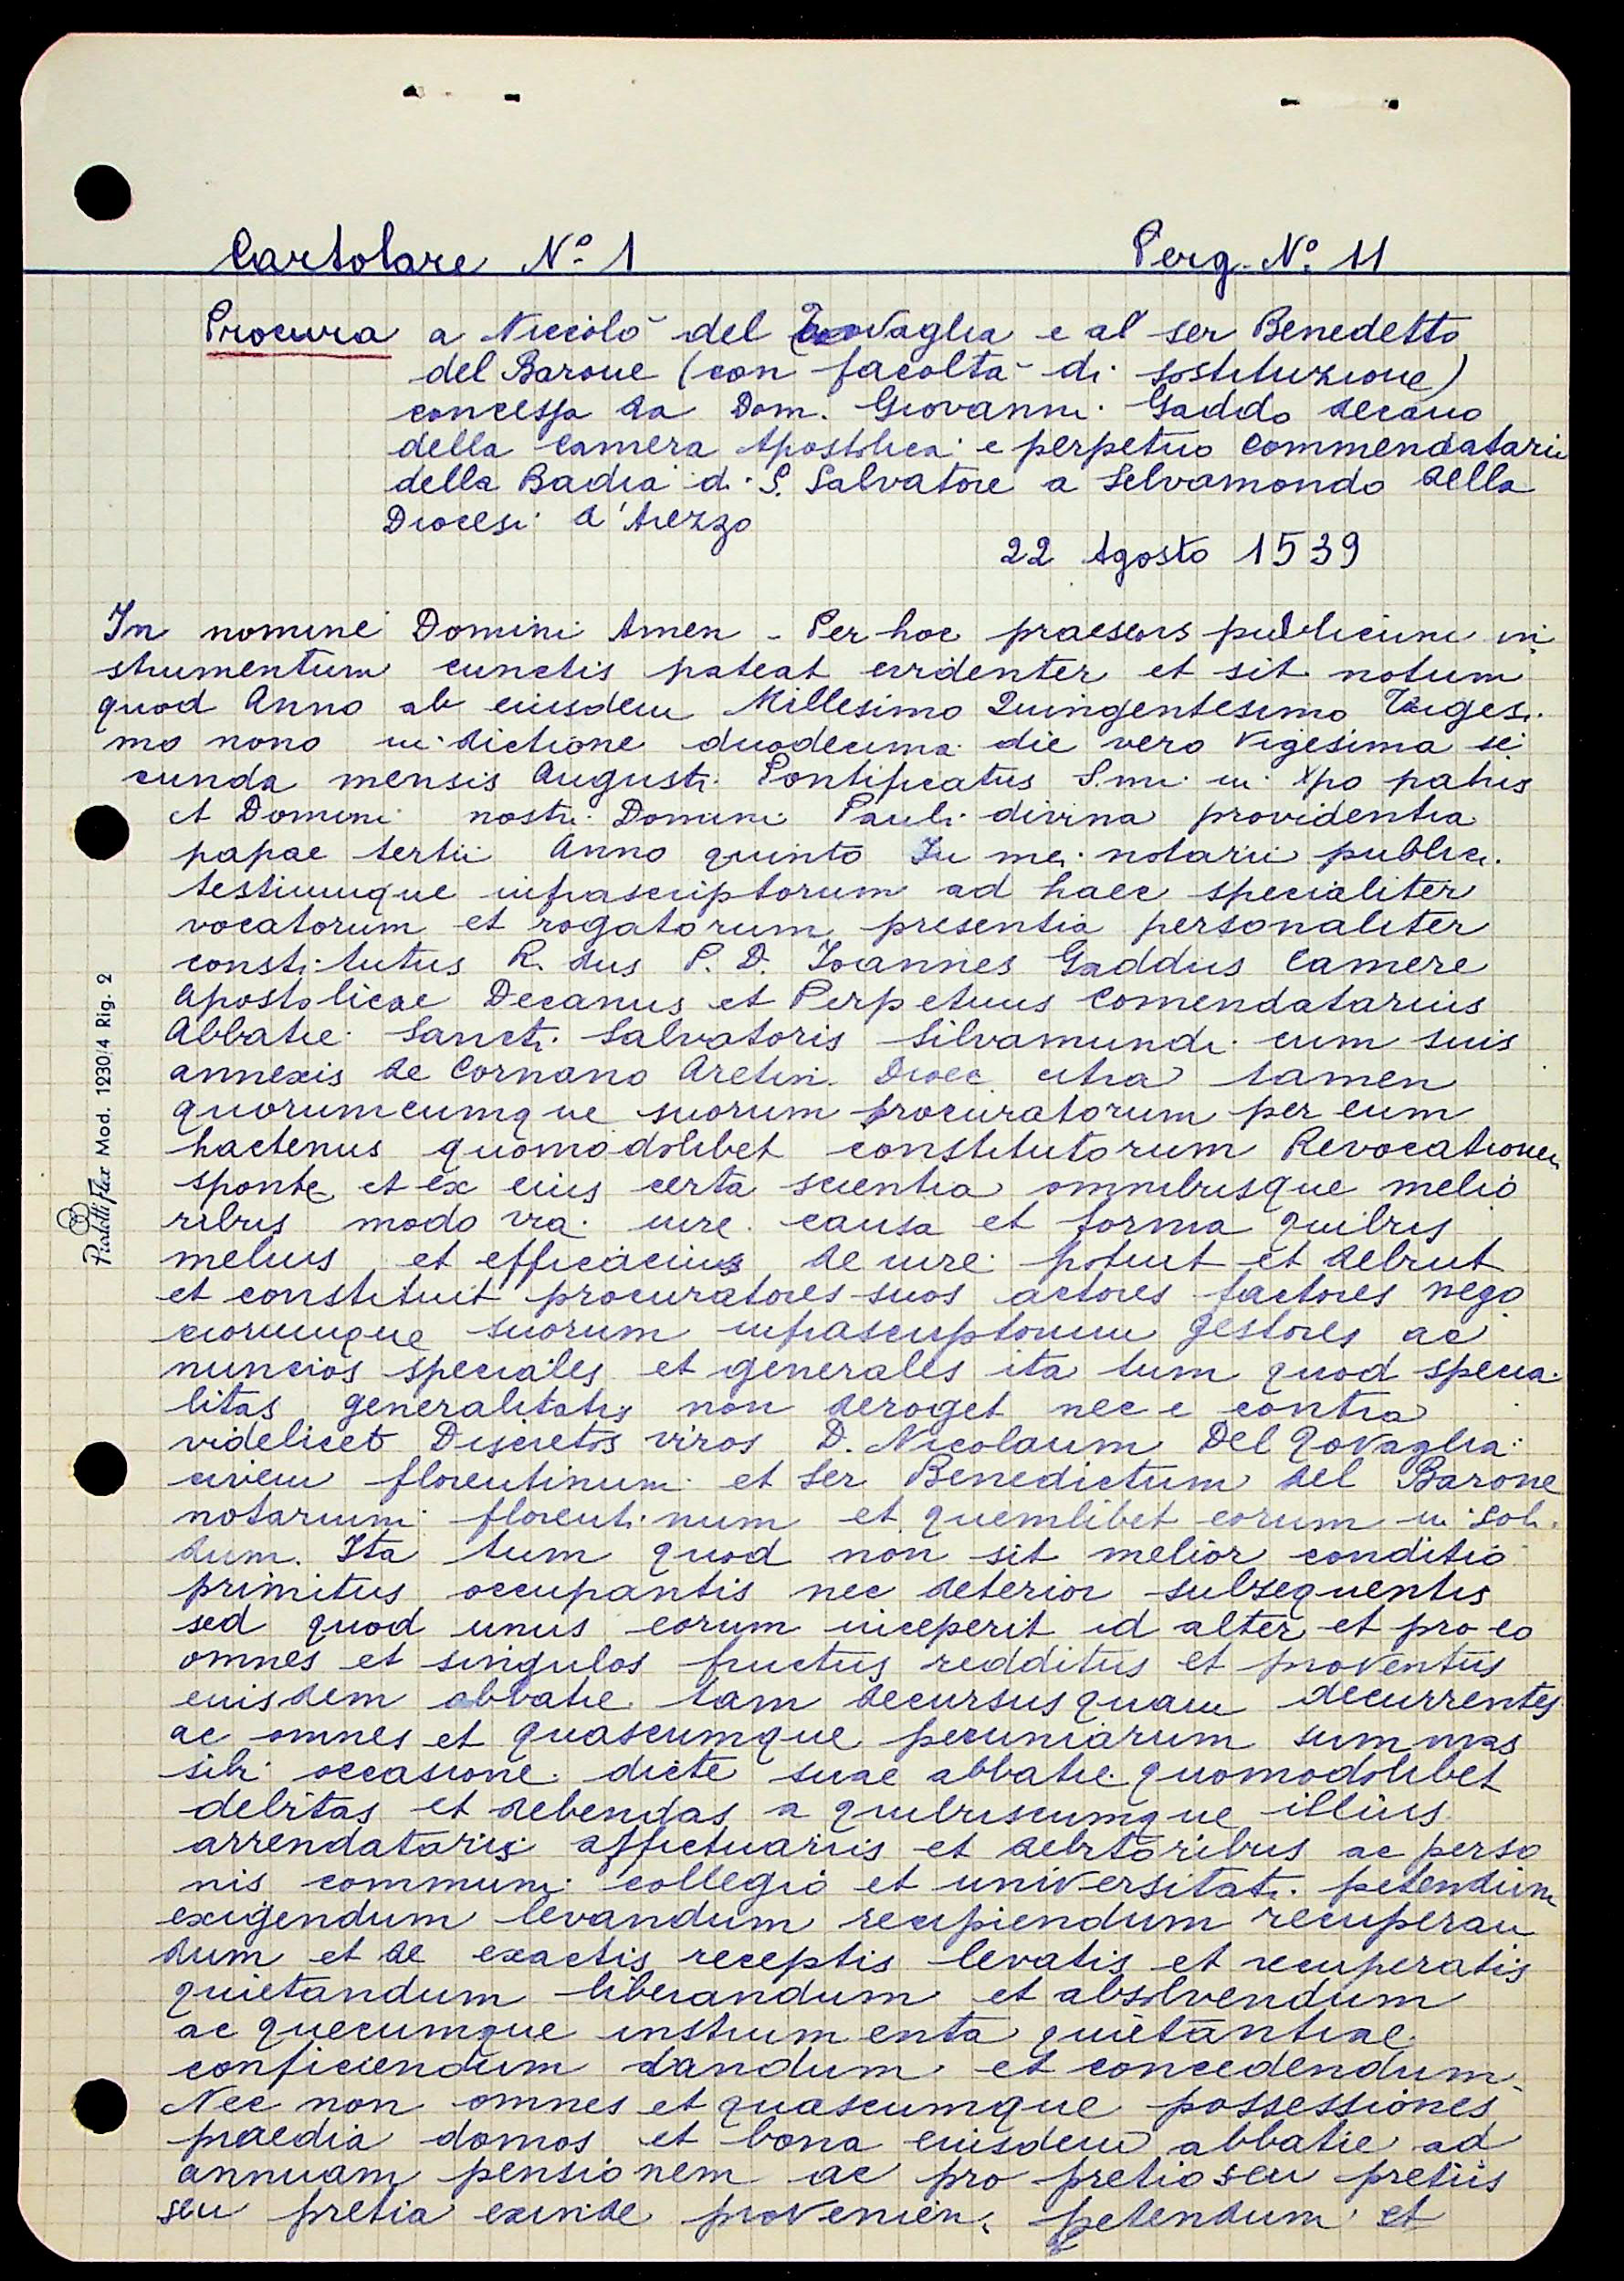 Cartolare N.º 1 Perg. N.º 11
Procura a Niccolò del Tovaglia e al ser Benedetto
del Barone (con facoltà di sostituzione)
concessa da Dom. Giovanni Gaddo decano
della Camera Apostolica e perpetuo Commendatario
della Badia di S. Salvatore a Selvamondo della
Diocesi d'Arezzo
22 Agosto 1539
In nomine Domini Amen - Per hoc praesens publicum in
strumentum cunctis pateat evidenter et sit notum
quod Anno ab eiusdem Millesimo Quingentesimo Trigesi
mo nono indictione duodecima die vero Vigesima se
cunda mensis Augusti Pontificatus S.mi in Xpo patris
et Domini nostri Domini Pauli divina providentia
papae tertii Anno quinto In mei notarii publici
testiumque infrascriptorum ad haec specialiter
vocatorum et rogatorum presentia personaliter
constitutus R. dus P. D. Ioannes Gaddus Camere
Apostolicae Decanus et Perpetuus Comendatarius
Abbatie Sancti Salvatoris Silvamundi cum suis
annexis de Cornano Aretin. Dioec. citra tamen
quorumcumque suorum procuratorum per eum
hactenus quomodolibet constitutorum Revocationem
sponte et ex eius certa scientia omnibusque melio
ribus modo via iure causa et forma quibus
melius et efficacius de iure potuit et debuit
et constituit procuratores suos actores factores nego
ciorumque suorum infrascriptorum gestores ac
nuncios speciales et generales ita tum quod specia
litas generalitatis non deroget nec e contra
videlicet Discretos viros D. Nicolaum Del Tovaglia
civem florentinum et Ser Benedictum del Barone
notarium florentinum et quemlibet eorum in soli
dum. Ita tum quod non sit melior conditio
primitus occupantis nec deterior subsequentis
sed quod unus eorum inceperit id alter et pro eo
omnes et singulos fructus redditus et proventus
euisdem abbatie tam decursus quam decurrentes
ac omnes et quascumque pecuniarum summas
sibi occasione dicte suae abbatie quomodolibet
debitas et debendas a quibuscumque illius
arrendatariis affictuariis et debitoribus ac perso
nis communi collegio et universitati petendum
exigendum levandum recipiendum recuperan
dum et de exactis receptis levatis et recuperatis
quietandum liberandum et absolvendum
ac quecumque instrumenta quietantiae
conficiendum dandum et concedendum.
Nec non omnes et quascumque possessiones
praedia domos et bona eiusdem abbatie ad
annuam pensionem ac pro pretio seu pretiis
seu pretia exinde provenien. petendum et
Pigna Mod. 1230/4 Rig. 2